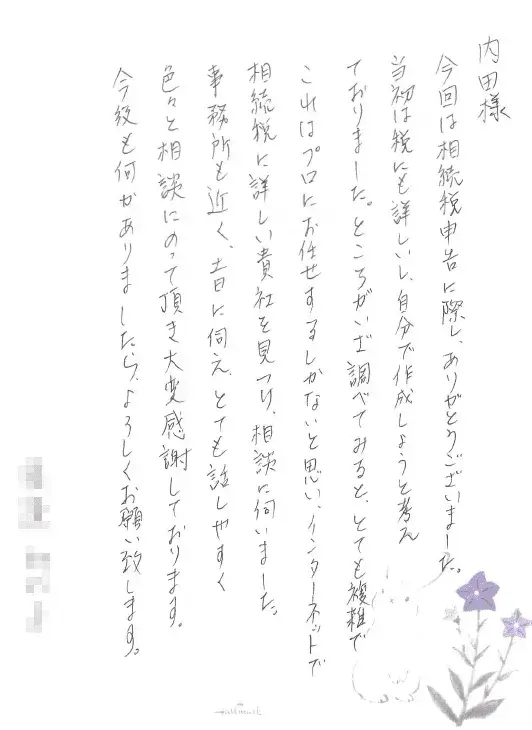 内田様
今回は相続税申告に際し、ありがとうございました。
当初は税にも詳しいし、自分で作成しようと考え
ておりました。ところがいざ調べてみると、とても複雑で
これはプロにお任せするしかないと思い、インターネットで
相続税に詳しい貴社を見つけ、相談に伺いました。
事務所も近く、土日に伺え、とても話しやすく
色々と相談にのって頂き大変感謝しております。
今後も何かありましたら、よろしくお願い致します。
Hallmark